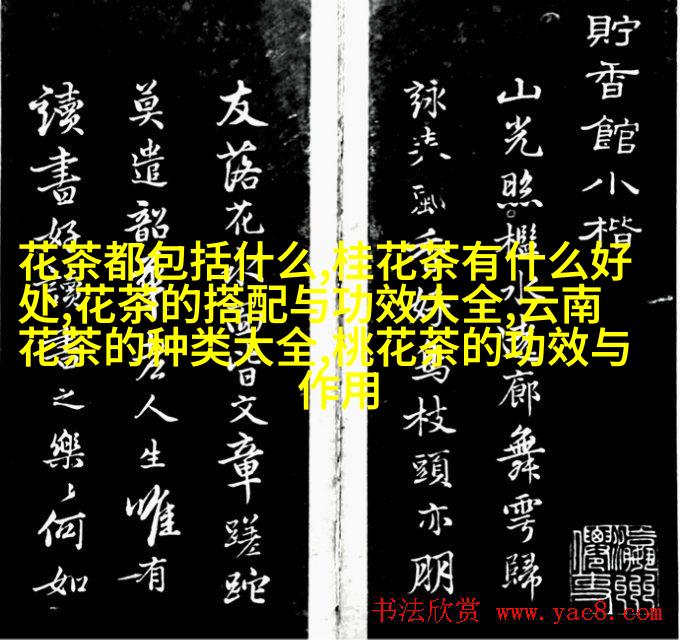 貯香館小楷
山光照檻水遶廊舞雩歸
詠春風香好鳥枝頭亦朋
友落花水面皆文章蹉跎
莫遣韶華老人生唯有
讀書好讀書之樂〻何如
花茶都包括什么,桂花茶有什么好
处,花茶的搭配与功效大全,云南
花茶的种类大全,桃花茶的功效与
作用
书法欣赏 www.yac8.com